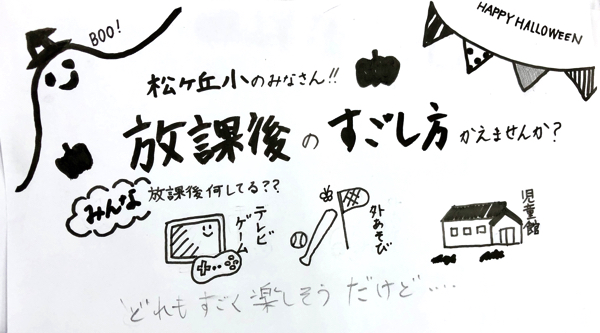 BOO!
HAPPY HALLOWEEN
松ヶ丘小のみなさん!!
放課後のすごし方かえませんか?
みんな放課後何してる??
テレビ
ゲーム
外あそび
児童館
どれもすごく楽しそうだけど‥‥